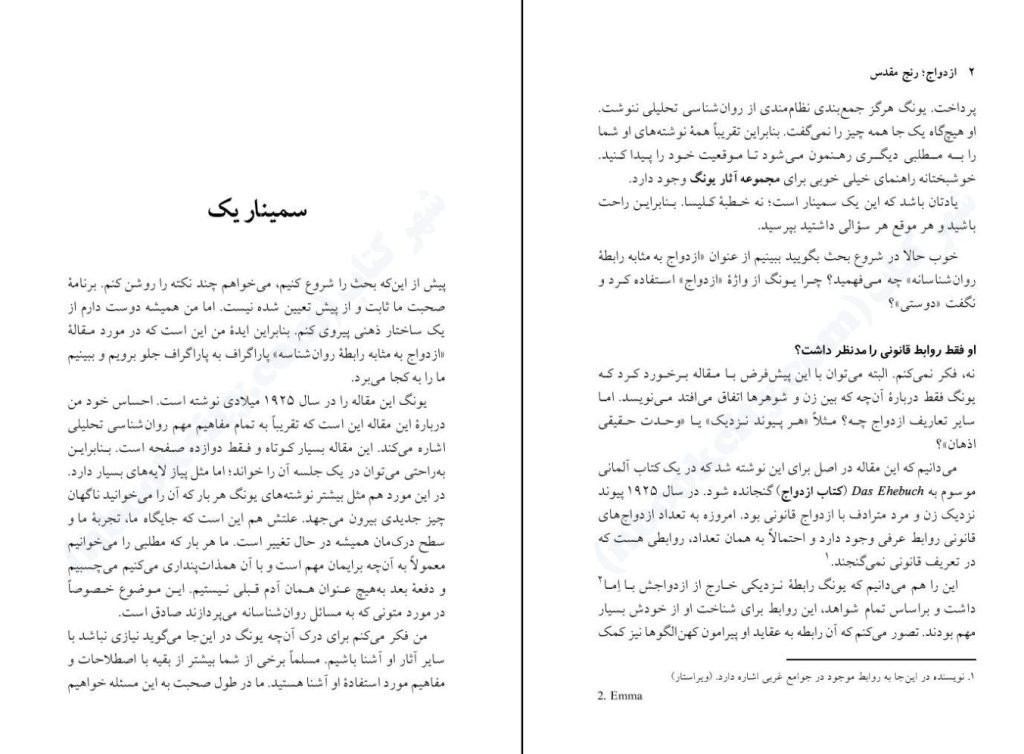 سمینار یک
پیش از این‌که بحث را شروع کنیم، می‌خواهم چند نکته را روشن کنم. برنامهٔ
صحبت ما ثابت و از پیش تعیین شده نیست. اما من همیشه دوست دارم از
یک ساختار ذهنی پیروی کنم. بنابراین ایدهٔ من این است که در مورد مقالهٔ
«ازدواج به مثابه رابطهٔ روان‌شناسه» پاراگراف به پاراگراف جلو برویم و ببینیم
ما را به کجا می‌برد.
یونگ این مقاله را در سال ۱۹۲۵ میلادی نوشته است. احساس خود من
دربارهٔ این مقاله این است که تقریباً به تمام مفاهیم مهم روان‌شناسی تحلیلی
اشاره می‌کند. این مقاله بسیار کوتاه و فقط دوازده صفحه است. بنابراین
به‌راحتی می‌توان در یک جلسه آن را خواند؛ اما مثل پیاز لایه‌های بسیار دارد.
در این مورد هم مثل بیشتر نوشته‌های یونگ هر بار که آن را می‌خوانید ناگهان
چیز جدیدی بیرون می‌جهد. علتش هم این است که جایگاه ما، تجربهٔ ما و
سطح درک‌مان همیشه در حال تغییر است. ما هر بار که مطلبی را می‌خوانیم
معمولاً به آن‌چه برایمان مهم است و با آن همذات‌پنداری می‌کنیم می‌چسبیم
و دفعهٔ بعد به‌هیچ عنوان همان آدم قبلی نیستیم. این موضوع خصوصاً
در مورد متونی که به مسائل روان‌شناسانه می‌پردازند صادق است.
من فکر می‌کنم برای درک آن‌چه یونگ در این‌جا می‌گوید نیازی نباشد با
سایر آثار او آشنا باشیم. مسلماً برخی از شما بیشتر از بقیه با اصطلاحات و
مفاهیم مورد استفادهٔ او آشنا هستید. ما در طول صحبت به این مسئله خواهیم
۲ ازدواج؛ رنج مقدس
پرداخت. یونگ هرگز جمع‌بندی نظام‌مندی از روان‌شناسی تحلیلی ننوشت.
او هیچ‌گاه یک جا همه چیز را نمی‌گفت. بنابراین تقریباً همهٔ نوشته‌های او شما
را به مطلبی دیگری رهنمون می‌شود تا موقعیت خود را پیدا کنید.
خوشبختانه راهنمای خیلی خوبی برای مجموعه آثار یونگ وجود دارد.
یادتان باشد که این یک سمینار است؛ نه خطبهٔ کلیسا. بنابراین راحت
باشید و هر موقع هر سؤالی داشتید بپرسید.
خوب حالا در شروع بحث بگویید ببینیم از عنوان «ازدواج به مثابه رابطهٔ
روان‌شناسانه» چه می‌فهمید؟ چرا یونگ از واژهٔ «ازدواج» استفاده کرد و
نگفت «دوستی»؟
او فقط روابط قانونی را مدنظر داشت؟
نه، فکر نمی‌کنم. البته می‌توان با این پیش‌فرض با مقاله برخورد کرد که
یونگ فقط دربارهٔ آن‌چه که بین زن و شوهرها اتفاق می‌افتد می‌نویسد. اما
سایر تعاریف ازدواج چه؟ مثلاً «هر پیوند نزدیک» یا «وحدت حقیقی
اذهان»؟
می‌دانیم که این مقاله در اصل برای این نوشته شد که در یک کتاب آلمانی
موسوم به Das Ehebuch (کتاب ازدواج) گنجانده شود. در سال ۱۹۲۵ پیوند
نزدیک زن و مرد مترادف با ازدواج قانونی بود. امروزه به تعداد ازدواج‌های
قانونی روابط عرفی وجود دارد و احتمالاً به همان تعداد، روابطی هست که
در تعریف قانونی نمی‌گنجند.۱
این را هم می‌دانیم که یونگ رابطهٔ نزدیکی خارج از ازدواجش با اِما۲
داشت و براساس تمام شواهد، این روابط برای شناخت او از خودش بسیار
مهم بودند. تصور می‌کنم که آن رابطه به عقاید او پیرامون کهن‌الگوها نیز کمک
۱. نویسنده در این‌جا به روابط موجود در جوامع غربی اشاره دارد. (ویراستار)
2. Emma